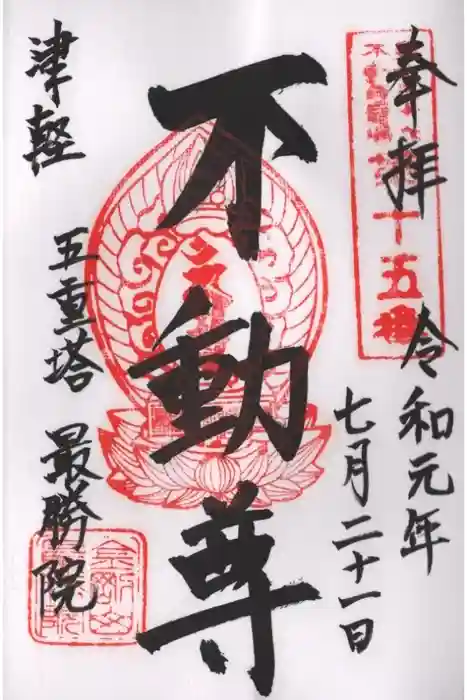 奉拝
令和元年
七月二十一日
不動尊
津軽
五重塔
最勝院